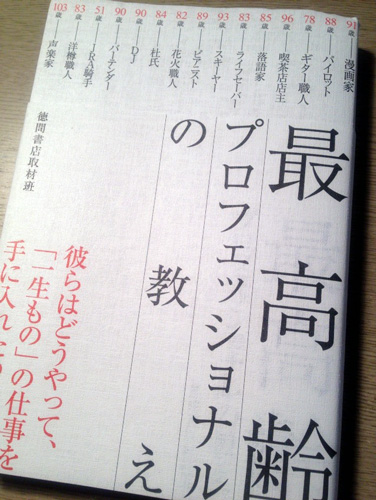 91歳―漫画家
88歳―パイロット
78歳―ギター職人
96歳―喫茶店店主
85歳―落語家
83歳―ライフセーバー
92歳―スキーヤー
89歳―ピアニスト
82歳―花火職人
84歳―杜氏
90歳―DJ
90歳―バーテンダー
51歳―JRA騎手
83歳―洋樽職人
103歳―声楽家
最高齢
プロフェッショナル
の教え
徳間書店取材班
彼らはどうやって、
「一生もの」の仕事を
手に入れた